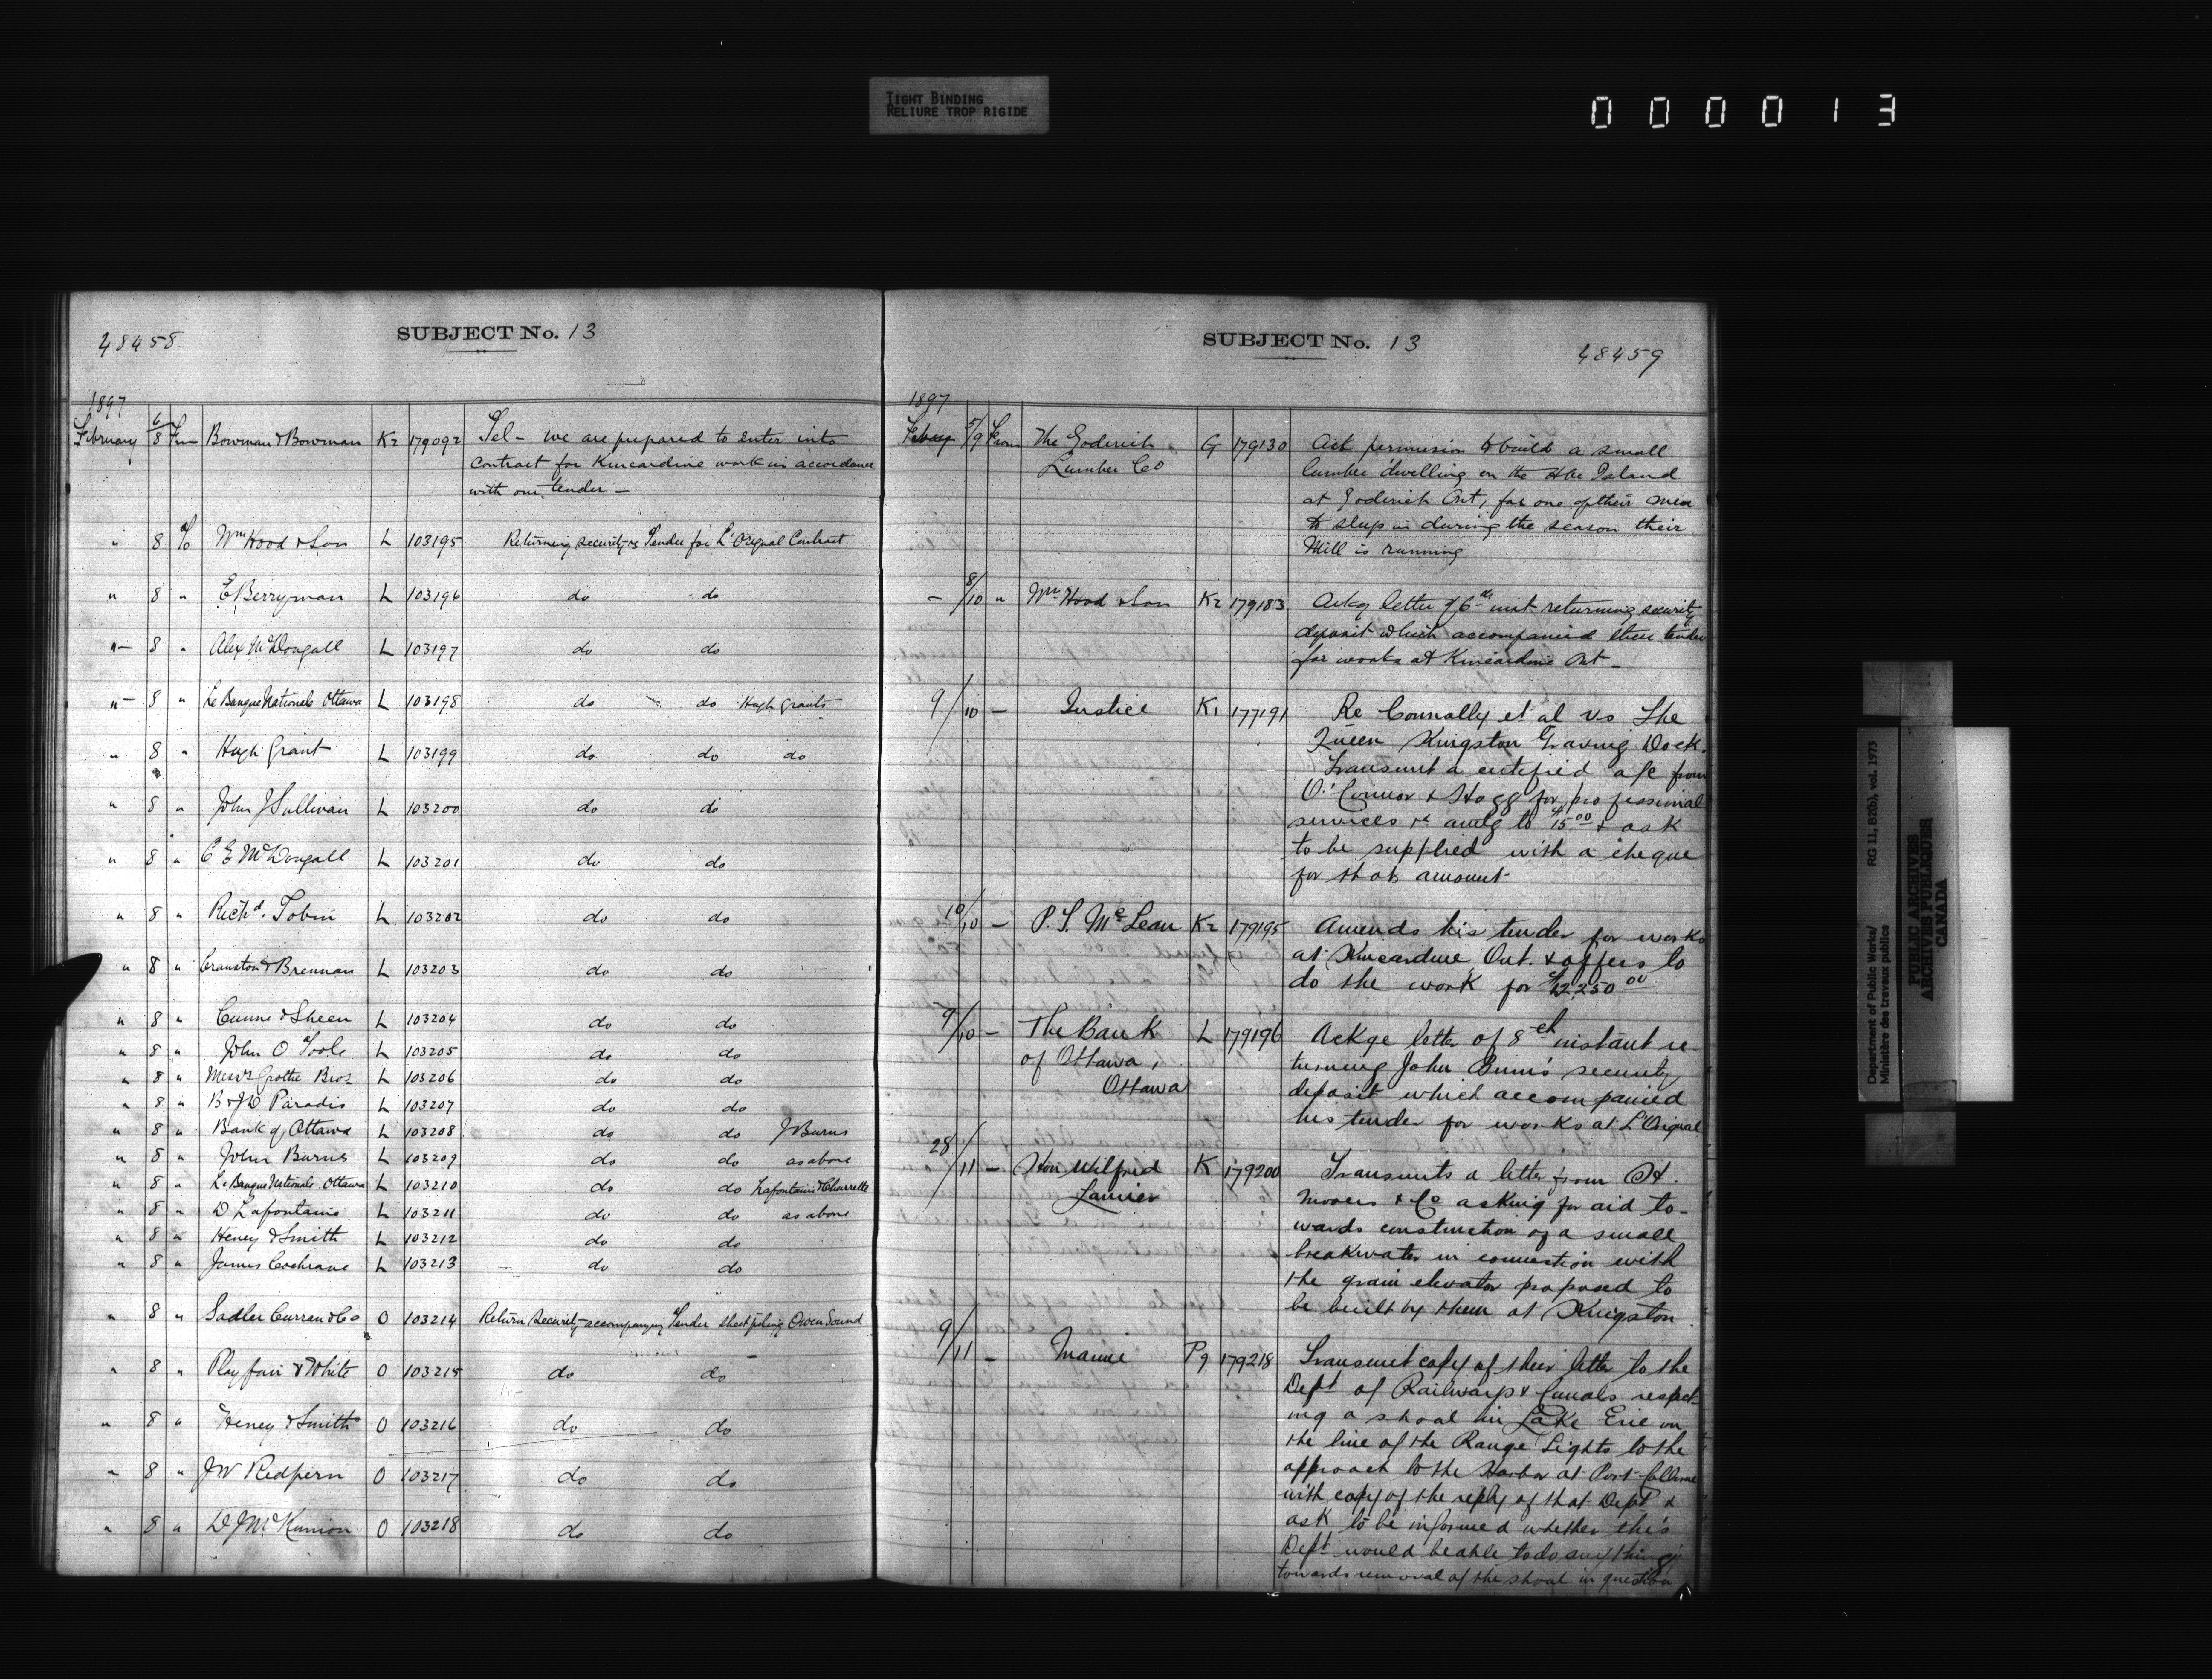 TIGHT BINDING
RELIURE TROP RIGIDE
000013
48458
SUBJECT No. 13
1897
February 6/8 Fm Bowman & Bowman K2 179092 Tel - we are prepared to enter into
contract for Kincardine work in accordance
with our tender -
" 8 To Wm Hood & Son L 103195 Returning security re Tender for L'Orignal Contract
" 8 " E Berryman L 103196 do do
" 8 " Alex McDougall L 103197 do do
" 8 " Le Banque Nationale Ottawa L 103198 do do Hugh Grants
" 8 " Hugh Grant L 103199 do do do
" 8 " John J Sullivan L 103200 do do
" 8 " C E McDougall L 103201 do do
" 8 " Richd. Tobin L 103202 do do
" 8 " Cranston & Brennan L 103203 do do
" 8 " & Sheen L 103204 do do
" 8 " John O Toole L 103205 do do
" 8 " Messrs Grothe Bros L 103206 do do
" 8 " Paradis L 103207 do do
" 8 " Bank of Ottawa L 103208 do do J Burns
" 8 " John Burns L 103209 do do as above
" 8 " Le Banque Nationale Ottawa L 103210 do do Lafontaine &
" 8 " D Lafontaine L 103211 do do as above
" 8 " Heney & Smith L 103212 do do
" 8 " James Cochrane L 103213 do do
" 8 " Sadler Curran & Co O 103214 Return security accompanying Tender sheet piling Owen Sound
" 8 " Playfair & White O 103215 do do
" 8 " Heney & Smith O 103216 do do
" 8 " J W Redfern O 103217 do do
" 8 " D J O 103218 do do
SUBJECT No. 13
48459
1897
Feby 5/9 From The Goderich G 179130 Ask permission to build a small
Lumber Co lumber dwelling on the Island
at Goderich Ont, for one of their men
to sleep in during the season their
Mill is running
- 8/10 " Wm Hood & Son K2 179183 Ackg letter of 6th inst returning security
deposit which accompanied their tender
for works at Kincardine Ont -
9/10 - Justice K1 177191 Re Connolly et al vs The
Queen Kingston Graving Dock.
Transmit a certified a/c from
O'Connor & Hogg for professional
services amtg to $15.00 & ask
to be supplied with a cheque
for that amount
10/10 - P. S. McLean K2 179195 Amends his tender for works
at Kincardine Ont. & offers to
do the work for $12250.00
9/10 - The Bank L 179196 Ackge letter of 8th instant re-
of Ottawa, turning John Burns' security
Ottawa deposit which accompanied
his tender for works at L'Orignal
28/11 - Hon Wilfrid K 179200 Transmits a letter from
Laurier Mooers & Co asking for aid to-
wards construction of a small
breakwater in connection with
the grain elevator proposed to
be built by them at Kingston
9/11 - Marine P9 179218 Transmit copy of their letter to the
Dept of Railways & Canals respect-
ing a shoal in Lake Erie on
the line of the Range Lights to the
approach to the Harbor at Port Colborne
with copy of the reply of that Dept &
ask to be informed whether this
Dept would be able to do anything
towards removal of the shoal in question
Department of Public Works/ RG 11, B2(b), vol. 1973
Ministère des travaux publics
PUBLIC ARCHIVES
ARCHIVES PUBLIQUES
CANADA